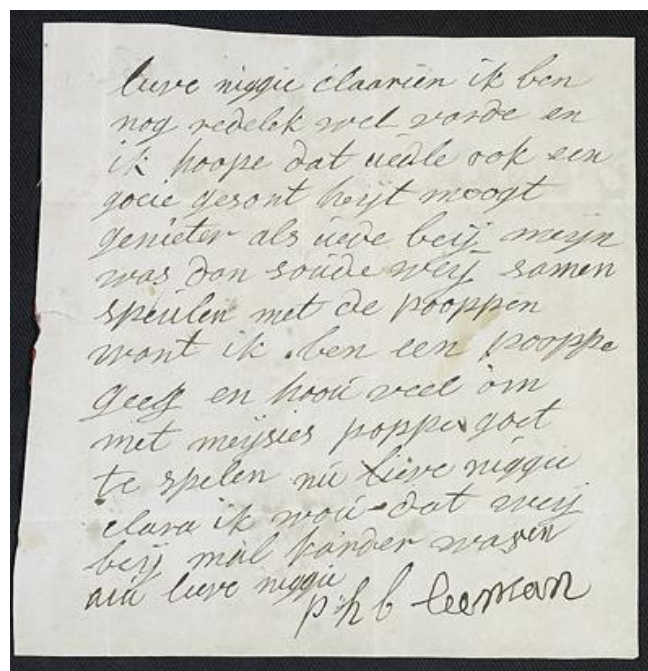 lieve niggie claarien ik ben
nog redelek wel vorde en
ik hoope dat uedle ook een
goeie gesont heijt moogt
genieter als uede beij meijn
was dan soude weij samen
speulen met de pooppen
want ik ben een pooppe
geeg en hoou veel om
met meijsies poppe goet
te spelen nu lieve niggie
clara ik wou dat weij
beij mal kander waren
aiu lieve niggie
p h b leeman